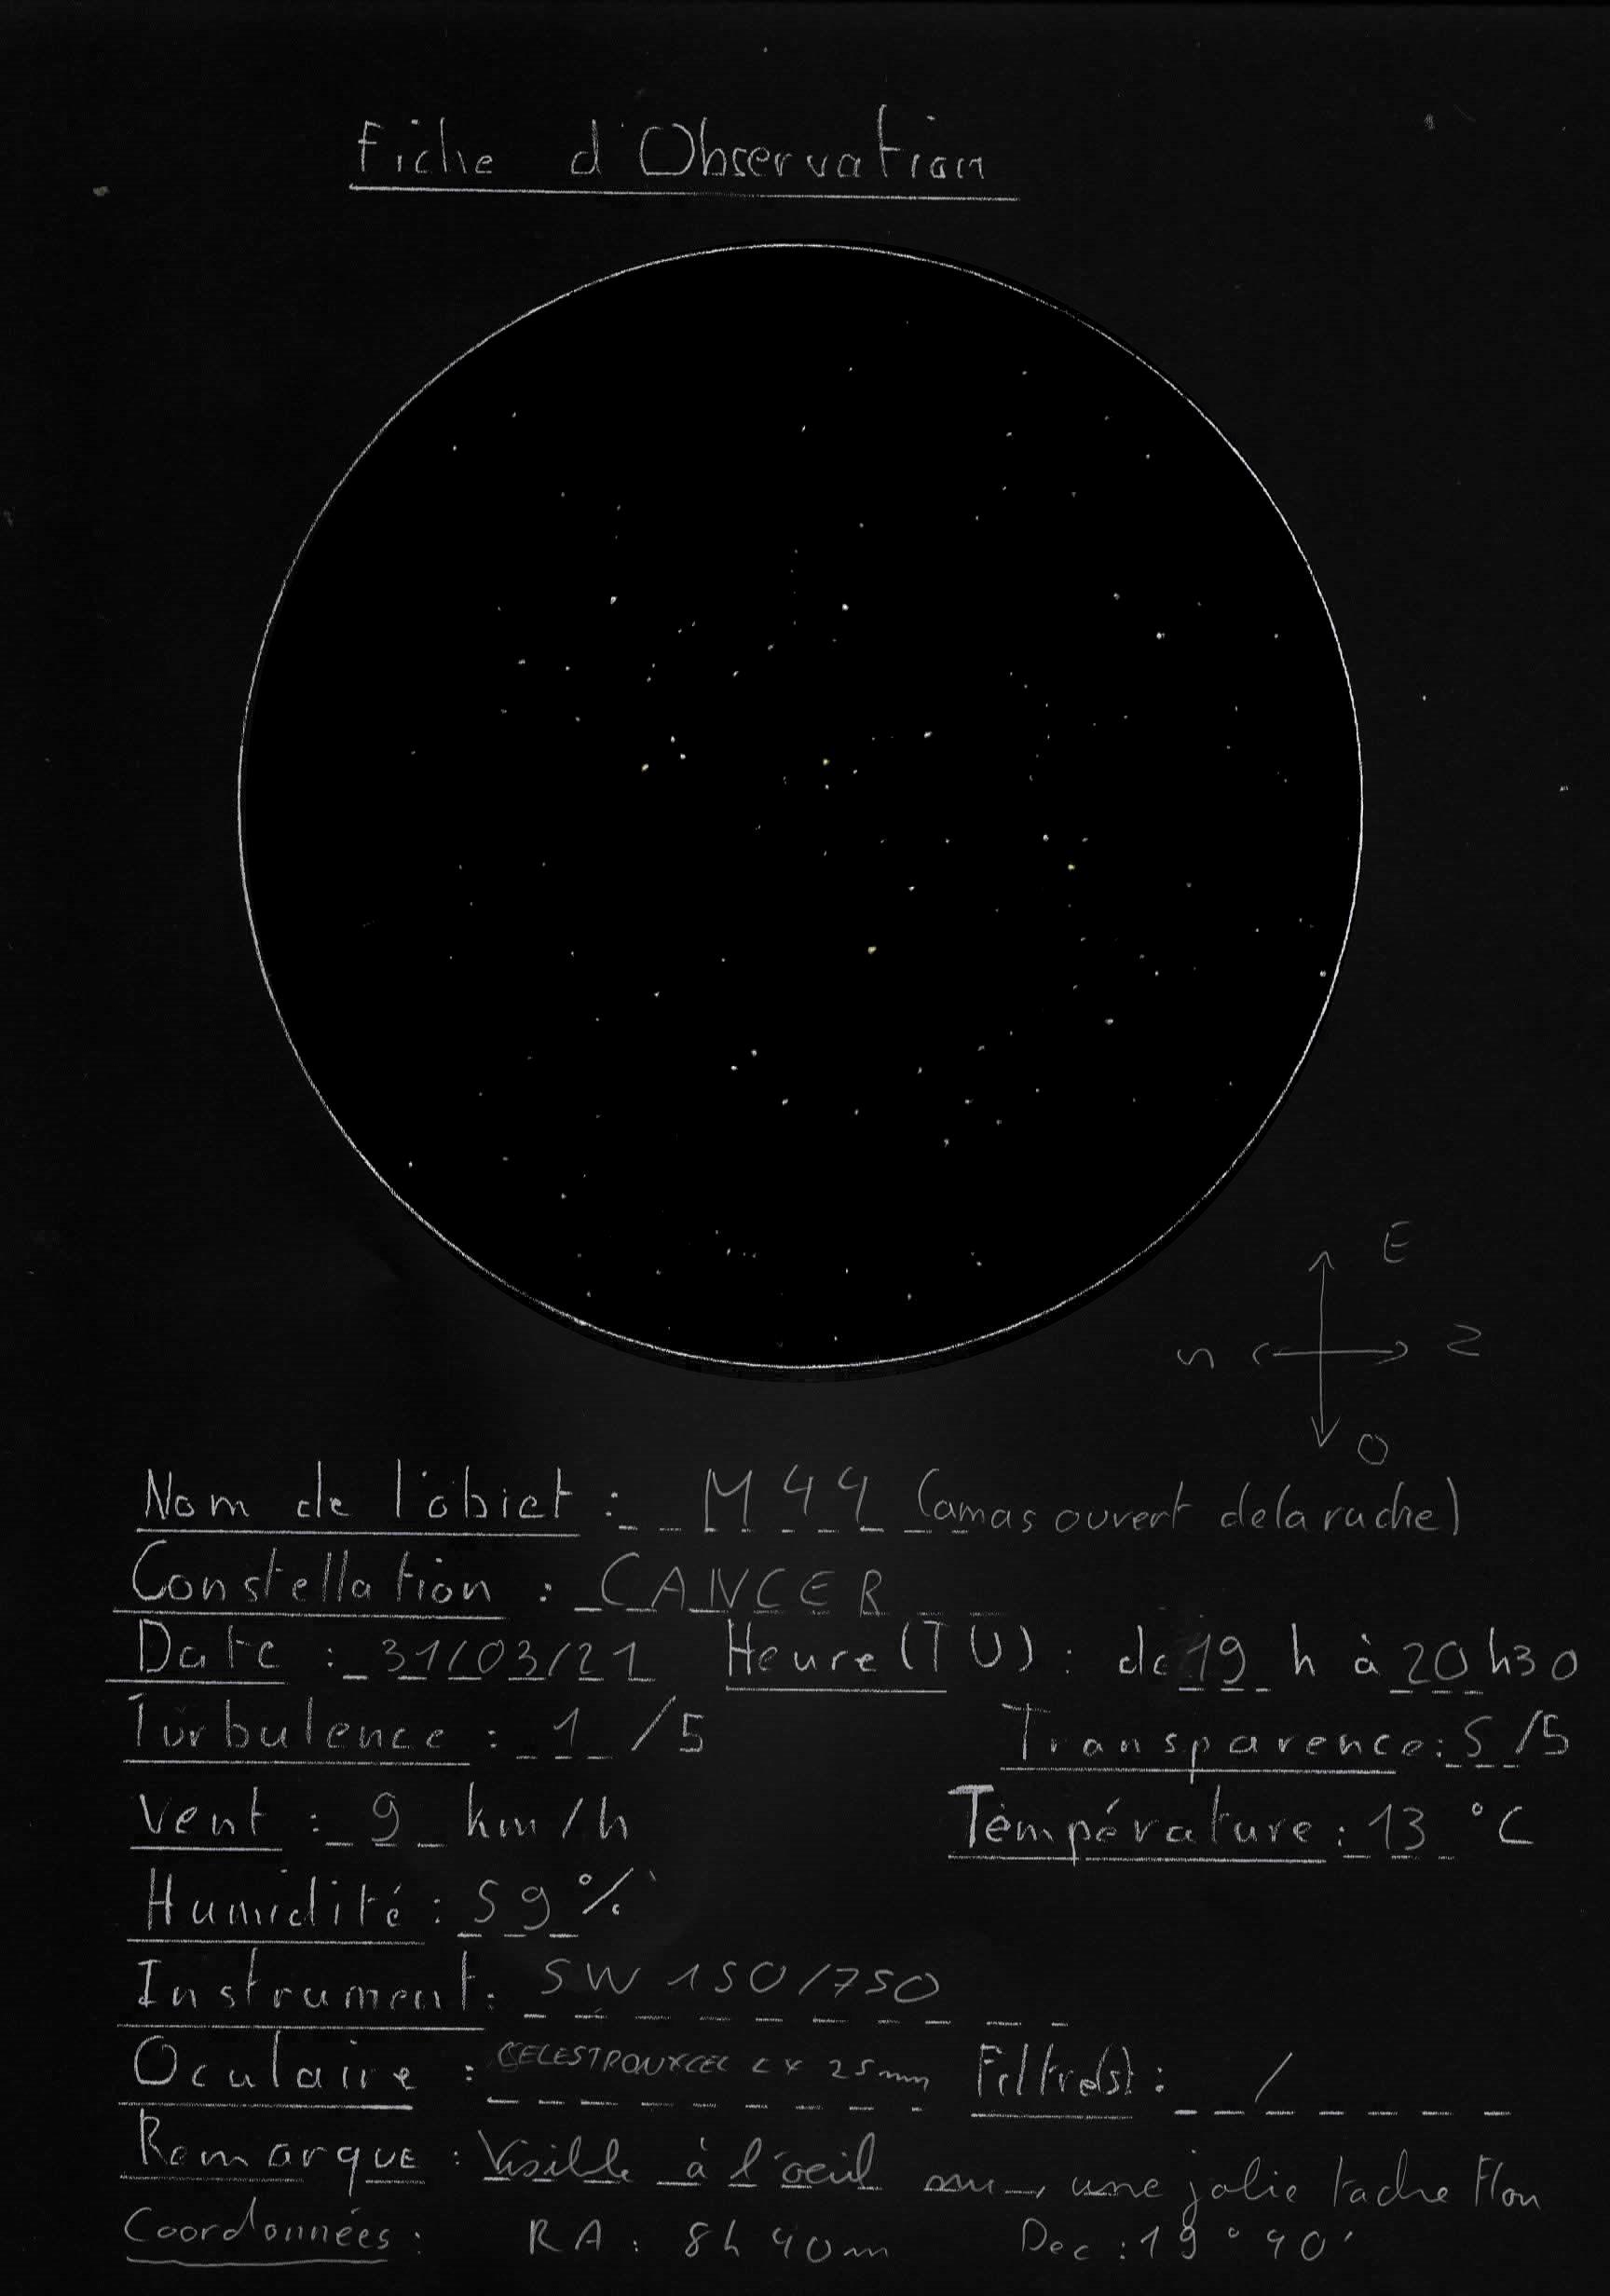 Fiche d'Observation
E
n S
O
Nom de l'objet : M44 (amas ouvert de la ruche)
Constellation : CANCER
Date : 31/03/21 Heure (TU) : de 19 h à 20 h30
Turbulence : 1 /5 Transparence : 5 /5
Vent : 9 km/h Température : 13 °C
Humidité : 59 %
Instrument : SW 150/750
Oculaire : CELESTRON XCEL LX 25mm Filtre(s) : /
Remarque : Visible à l'oeil nu → une jolie tache Flou
Coordonnées : RA : 8h 40m Dec : 19° 40'